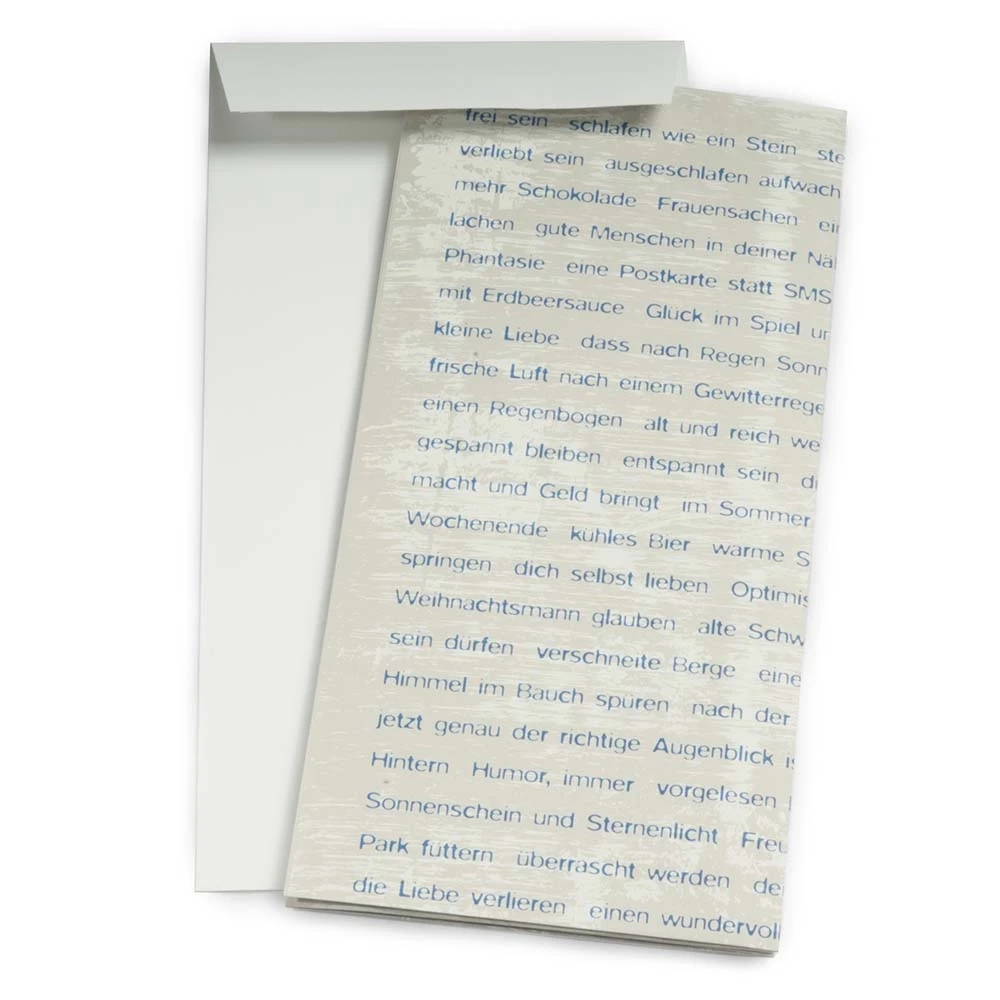 frei sein schlafen wie ein Stein ste
verliebt sein ausgeschlafen aufwach
mehr Schokolade Frauensachen ein
lachen gute Menschen in deiner Näh
Phantasie eine Postkarte statt SMS
mit Erdbeersauce Glück im Spiel un
kleine Liebe dass nach Regen Sonn
frische Luft nach einem Gewitterrege
einen Regenbogen alt und reich we
gespannt bleiben entspannt sein di
macht und Geld bringt im Sommer
Wochenende kühles Bier warme S
springen dich selbst lieben Optimis
Weihnachtsmann glauben alte Schw
sein dürfen verschneite Berge eine
Himmel im Bauch spüren nach der
jetzt genau der richtige Augenblick is
Hintern Humor, immer vorgelesen
Sonnenschein und Sternenlicht Freu
Park füttern überrascht werden de
die Liebe verlieren einen wundervoll